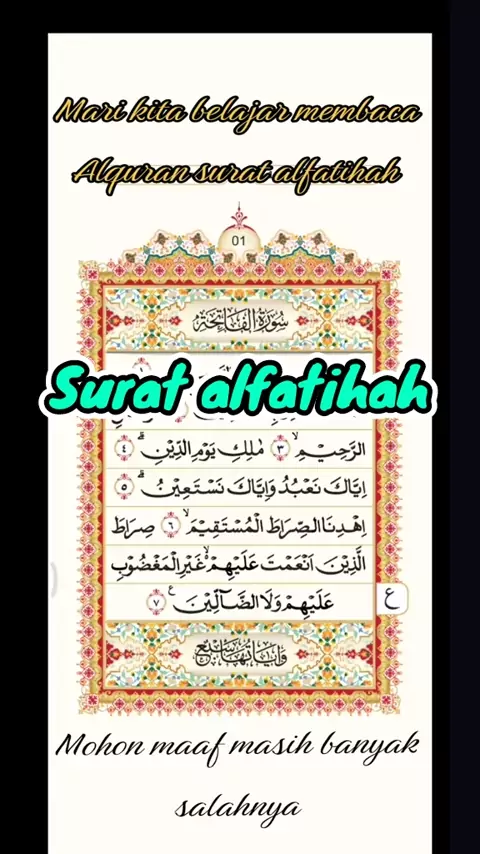 Mari kita belajar membaca
Alquran surat alfatihah
01
سُوْرَةُ الْفَاتِحَةِ
Surat alfatihah
الرَّحِيْمِۙ ٣ مٰلِكِ يَوْمِ الدِّيْنِۗ ٤
اِيَّاكَ نَعْبُدُ وَاِيَّاكَ نَسْتَعِيْنُۗ ٥
اِهْدِنَا الصِّرَاطَ الْمُسْتَقِيْمَۙ ٦ صِرَاطَ
الَّذِيْنَ اَنْعَمْتَ عَلَيْهِمْۙ غَيْرِ الْمَغْضُوْبِ
عَلَيْهِمْ وَلَا الضَّاۤلِّيْنَࣖ ٧
ع
وَاٰيَاتُهَا سَبْعٌ
Mohon maaf masih banyak
salahnya